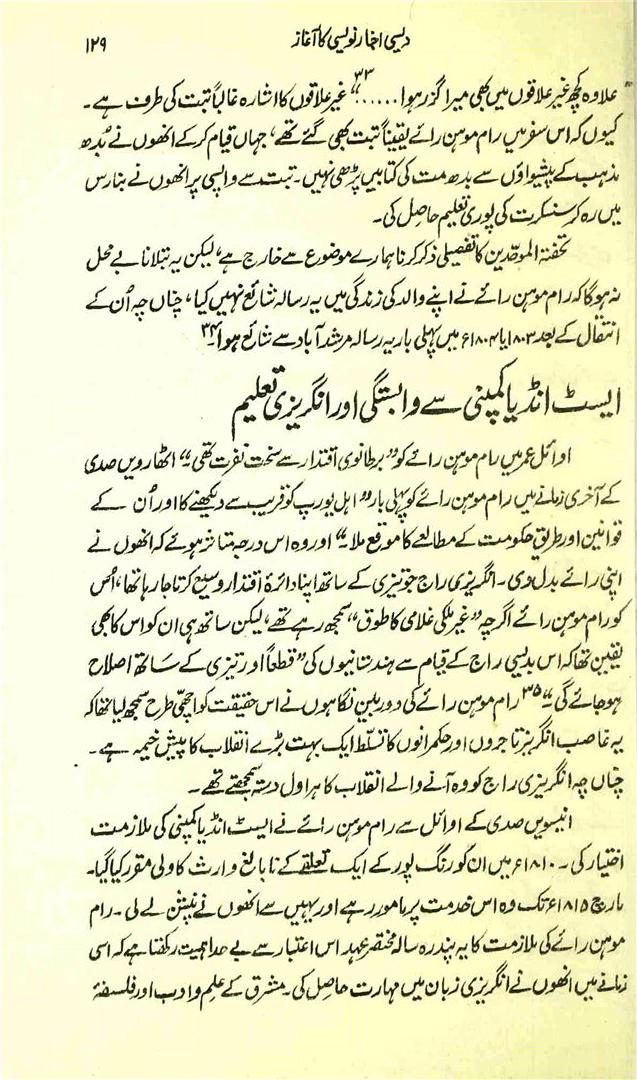 دیسی اخبار نویسی کا آغاز
۱۲۹
علاوہ کچھ غیر علاقوں میں بھی میرا گزر ہوا ......"۳۳ غیر علاقوں کا اشارہ غالباً تبت کی طرف ہے۔
کیوں کہ اس سفر میں رام موہن رائے یقیناً تبت بھی گئے تھے، جہاں قیام کرکے انھوں نے بُدھ
مذہب کے پیشواؤں سے بدھ مت کی کتابیں پڑھی تھیں۔ تبت سے واپسی پر انھوں نے بنارس
میں رہ کر سنسکرت کی پوری تعلیم حاصل کی۔
تحفۃ الموحّدین کا تفصیلی ذکر کرنا ہمارے موضوع سے خارج ہے، لیکن یہ بتلانا بے محل
نہ ہوگا کہ رام موہن رائے نے اپنے والد کی زندگی میں یہ رسالہ شائع نہیں کیا، چناں چہ اُن کے
انتقال کے بعد ۱۸۰۳ یا ۱۸۰۴ء میں پہلی بار یہ رسالہ مرشد آباد سے شائع ہوا۔۳۴
ایسٹ انڈیا کمپنی سے وابستگی اور انگریزی تعلیم
اوائل عمر میں رام موہن رائے کو "برطانوی اقتدار سے سخت نفرت تھی۔" اٹھارویں صدی
کے آخری زمانے میں رام موہن رائے کو پہلی بار "اہل یورپ کو قریب سے دیکھنے کا اور اُن کے
قوانین اور طریق حکومت کے مطالعے کا موقع ملا۔" اور وہ اس درجہ متاثر ہوئے کہ انھوں نے
اپنی رائے بدل دی۔ انگریزی راج جو تیزی کے ساتھ اپنا دائرۂ اقتدار وسیع کرتا جا رہا تھا، اُس
کو رام موہن رائے اگرچہ "غیر ملکی غلامی کا طوق" سمجھ رہے تھے، لیکن ساتھ ہی ان کو اس کا بھی
یقین تھا کہ اس بدیسی راج کے قیام سے ہندستانیوں کی "قطعاً اور تیزی کے ساتھ اصلاح
ہو جائے گی۔"۳۵ رام موہن رائے کی دور بین نگاہوں نے اس حقیقت کو اچھی طرح سمجھ لیا تھا کہ
یہ غاصب انگریز تاجروں اور حکمرانوں کا تسلّط ایک بہت بڑے انقلاب کا پیش خیمہ ہے۔
چناں چہ انگریزی راج کو وہ آنے والے انقلاب کا ہراول دستہ سمجھتے تھے۔
انیسویں صدی کے اوائل سے رام موہن رائے نے ایسٹ انڈیا کمپنی کی ملازمت
اختیار کی۔ ۱۸۱۰ء میں ان کو رنگ پور کے ایک تعلقے کے نابالغ وارث کا ولی مقرر کیا گیا۔
مارچ ۱۸۱۵ء تک وہ اس خدمت پر مامور رہے اور یہیں سے انھوں نے پنشن لے لی۔ رام
موہن رائے کی ملازمت کا یہ پندرہ سالہ مختصر عہد اس اعتبار سے بے حد اہمیت رکھتا ہے کہ اسی
زمانے میں انھوں نے انگریزی زبان میں مہارت حاصل کی۔ مشرق کے علم و ادب اور فلسفۂ